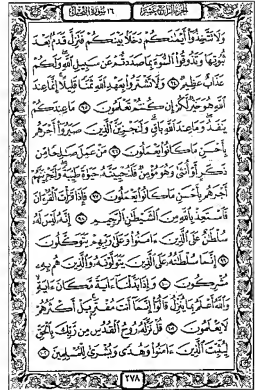 الجزء الرابع عشر ١٦ سورة النحل
وَلَا تَتَّخِذُوا أَيْمَانَكُمْ دَخَلًا بَيْنَكُمْ فَتَزِلَّ قَدَمٌ بَعْدَ
ثُبُوتِهَا وَتَذُوقُوا السُّوءَ بِمَا صَدَدتُّمْ عَن سَبِيلِ اللَّهِ وَلَكُمْ
عَذَابٌ عَظِيمٌ ٩٤ وَلَا تَشْتَرُوا بِعَهْدِ اللَّهِ ثَمَنًا قَلِيلًا إِنَّمَا عِندَ
اللَّهِ هُوَ خَيْرٌ لَّكُمْ إِن كُنتُمْ تَعْلَمُونَ ٩٥ مَا عِندَكُمْ
يَنفَدُ وَمَا عِندَ اللَّهِ بَاقٍ وَلَنَجْزِيَنَّ الَّذِينَ صَبَرُوا أَجْرَهُم
بِأَحْسَنِ مَا كَانُوا يَعْمَلُونَ ٩٦ مَنْ عَمِلَ صَالِحًا مِّن
ذَكَرٍ أَوْ أُنثَى وَهُوَ مُؤْمِنٌ فَلَنُحْيِيَنَّهُ حَيَاةً طَيِّبَةً وَلَنَجْزِيَنَّهُمْ
أَجْرَهُم بِأَحْسَنِ مَا كَانُوا يَعْمَلُونَ ٩٧ فَإِذَا قَرَأْتَ الْقُرْآنَ
فَاسْتَعِذْ بِاللَّهِ مِنَ الشَّيْطَانِ الرَّجِيمِ ٩٨ إِنَّهُ لَيْسَ لَهُ
سُلْطَانٌ عَلَى الَّذِينَ ءَامَنُوا وَعَلَى رَبِّهِمْ يَتَوَكَّلُونَ
٩٩ إِنَّمَا سُلْطَانُهُ عَلَى الَّذِينَ يَتَوَلَّوْنَهُ وَالَّذِينَ هُم بِهِ
مُشْرِكُونَ ١٠٠ وَإِذَا بَدَّلْنَا ءَايَةً مَّكَانَ ءَايَةٍ
وَاللَّهُ أَعْلَمُ بِمَا يُنَزِّلُ قَالُوا إِنَّمَا أَنتَ مُفْتَرٍ بَلْ أَكْثَرُهُمْ
لَا يَعْلَمُونَ ١٠١ قُلْ نَزَّلَهُ رُوحُ الْقُدُسِ مِن رَّبِّكَ بِالْحَقِّ
لِيُثَبِّتَ الَّذِينَ ءَامَنُوا وَهُدًى وَبُشْرَى لِلْمُسْلِمِينَ ١٠٢
٢٧٨